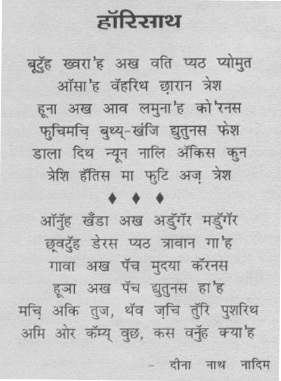 हॉरिसाथ
बूटुॅह ख्वरा'ह अख वति प्यठ प्योमुत
ऑसा'ह वॅहरिथ छ़ारान त्रेश
हूना अख आव लमुना'ह को'रनस
फुचिमचि़ बुथ्य्-खंजि द्युतुनस फेश
डाला दिथ न्यून नालि अॅकिस कुन
त्रेशि हॅतिस मा फुटि अज़ त्रेश
♦ ♦ ♦
ऑनुॅह खॅंडा अख अडुॅगॅर मडुॅगॅर
छ़्वटुॅह डेरस प्यठ त्रावान गा'ह
गावा अख पॅच मुदया कॅरनस
हूञा अख पॅच द्युतुनस हा'ह
मचि़ अकि तुज, थॅव ज़चि तुॅरि पुशरिथ
अमि ओर कॅम्य् वुछ, कस वनुॅह क्या'ह
- दीना नाथ नादिम